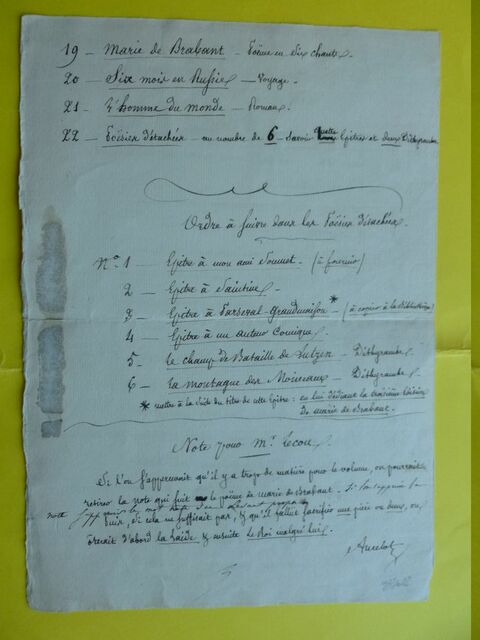 19 — Marie de Brabant — Poëme en Six chants.
20 — Six mois en Russie — Voyage.
21 — L'homme du monde — Roman.
22 — Poësies détachées — au nombre de 6 — savoir quatre Epitres et deux Dithyrambes
Ordre à suivre dans les Poësies détachées.
N° 1 — Epitre à mon ami Soumet. (à fournir)
2 — Epitre à Saintine.
3 — Epitre à Parseval-Grandmaison * — (à copier à la Bibliothèque)
4 — Epitre à un auteur Comique.
5 — Le champ de Bataille de Lutzen — Dithyrambe.
6 — La montagne des Moineaux — Dithyrambe.
* mettre à la Suite du titre de cette Epitre : en lui dédiant la troisième édition
de Marie de Brabant.
Note pour Mr. Lecou.
Si l'on s'appercevait qu'il y a trop de matière pour le volume, on pourrait
retirer la note qui suit le poëme de marie de Brabant. Si l'on supprime la
note
puis, si cela ne suffisait pas, & qu'il fallut sacrifier une pièce ou deux, on
ôterait d'abord la Laide, & ensuite Le Roi malgré lui.
Ancelot